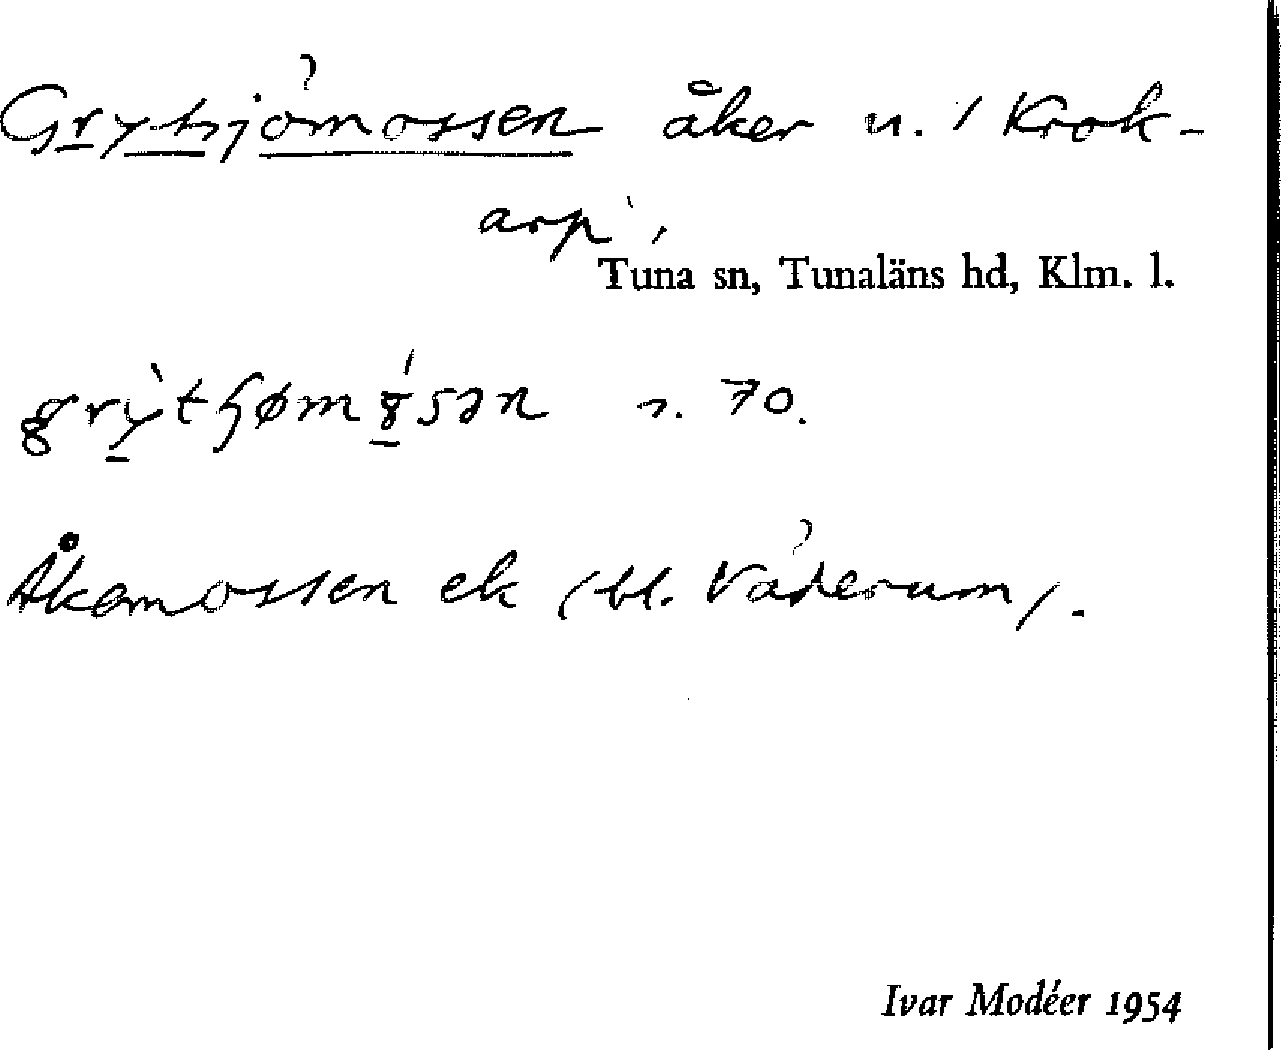 Gryhjömossen åker u. / Krok-
arp,
Tuna sn, Tunaläns hd, Klm. l.
70.
Åkemossen ek (bl. Väderum).
Ivar Modéer 1954